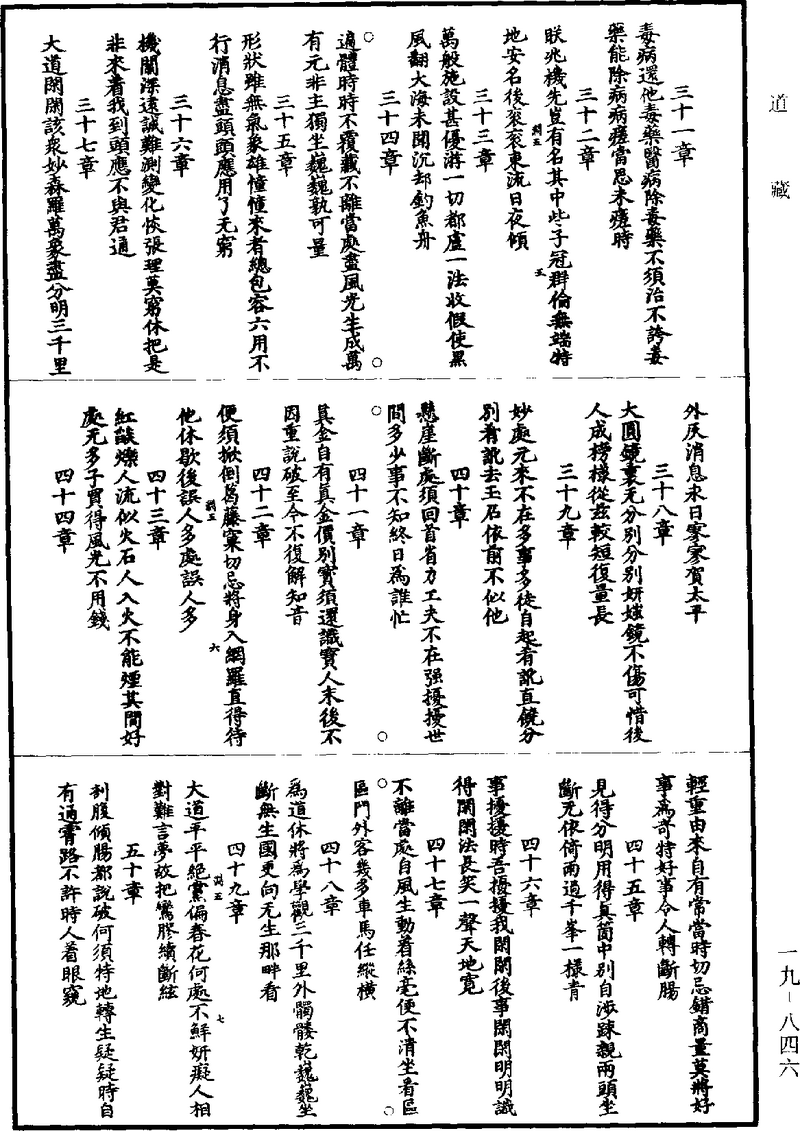 道藏
三十一章
毒病還他毒藥醫病除毒藥不須治不誇毒
藥能除病病瘥當思未瘥時
三十二章
朕兆機先豈有名其中些子冠群倫無端特
地安名後衮衮東流日夜傾
三十三章
萬般施設甚優游一切都盧一法收假使黑
風翻大海未聞沉却釣魚舟
三十四章
遍體時時不覆藏不離當處盡風光生成萬
有元非主獨坐巍巍孰可量
三十五章
形狀雖無氣象雄憧憧來者總包容六用不
行消息盡頭頭應用了无窮
三十六章
機關深遠誠難測變化恢張理莫窮休把是
非來着我到頭應不與君通
三十七章
大道閑閑該衆妙森羅萬象盡分明三千里
外仄消息永日寥寥賀太平
三十八章
大圓鏡裏无分別分別妍媸鏡不傷可惜後
人成榜樣從兹較短復量長
三十九章
妙處元來不在多事多徒自起肴訛直饒分
別肴訛去玉石依前不似他
四十章
懸崖斷處須回首省力工夫不在强擾擾世
間多少事不知終日為誰忙
四十一章
真金自有真金價別寳須還識寳人末後不
因重說破至今不復解知音
四十二章
便須掀倒葛藤窠切忌將身入網羅直得待
他休歇後誤人多處誤人多
四十三章
紅燄爍人流似火石人入火不能煙其間好
處无多子買得風光不用錢
四十四章
輕重由來自有常當時切忌錯商量莫將好
事為奇特好事令人轉斷腸
四十五章
見得分明用得真箇中別自涉踈親兩頭坐
斷无依倚雨過千峯一樣青
四十六章
事擾擾時吾擾擾我閑閑後事閑閑明明識
得閑閑法長笑一聲天地寬
四十七章
不離當處自風生動着絲毫便不清坐看區
區門外客幾多車馬任縱横
四十八章
為道休將為學觀三千里外髑髏乾巍巍坐
斷無生國更向无生那畔看
四十九章
大道平平絕黨偏春花何處不鮮妍癡人相
對難言夢故把鸞膠續斷絃
五十章
刳腹傾腸都說破何須特地轉生疑疑時自
有通霄路不許時人着眼窺
一九-八四六